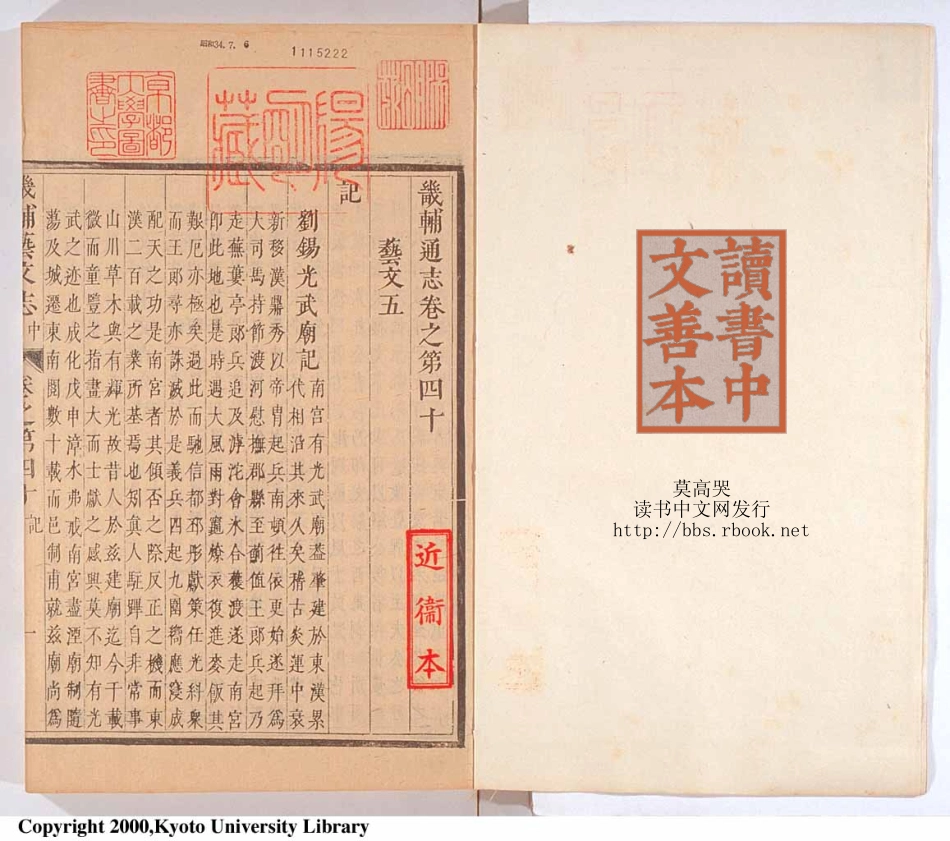 昭和34.7.6
1115222
京都大學圖書之印
陽明藏
畿輔通志卷之第四十
藝文五
記
劉錫光武廟記 南宮有光武廟葢肇建於東漢累
代相沿其來久矣稽古炎運中衰
新移漢鼎秀以帝胄起兵南頓往依更始遂拜爲
大司馬持節渡河慰撫郡縣至薊值王郎兵起乃
走蕪蔞亭郎兵追及滹沱會氷合獲渡遂走南宮
卽此地也是時遇大風雨對竈燎衣復進麥飯其
艱厄亦極矣過此而馳信都邳彤獻策任光糾衆
而王郎尋亦誅滅於是義兵四起九圍嚮應寖成
配天之功是南宮者其傾否之際反正之機而東
漢二百載之業所基焉也矧眞人駐蹕自非常事
山川草木與有輝光故昔人於兹建廟迄今于載
微而童豎之指畫大而士獻之感興莫不知有光
武之迹也成化戊申漳水弗戒南宮盡湮廟制隨
蕩及城遷東南閱數十載而邑制甫就兹廟尚爲
畿輔藝文志 中 卷之第四十 記 一
近衞本
讀書中文善本
莫高哭
读书中文网发行
http://bbs.rbook.net
Copyright 2000,Kyoto University Library